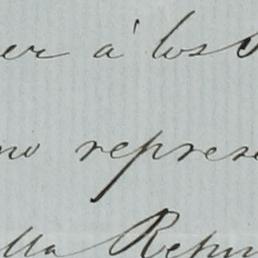 er á los
no repres
lla Repu